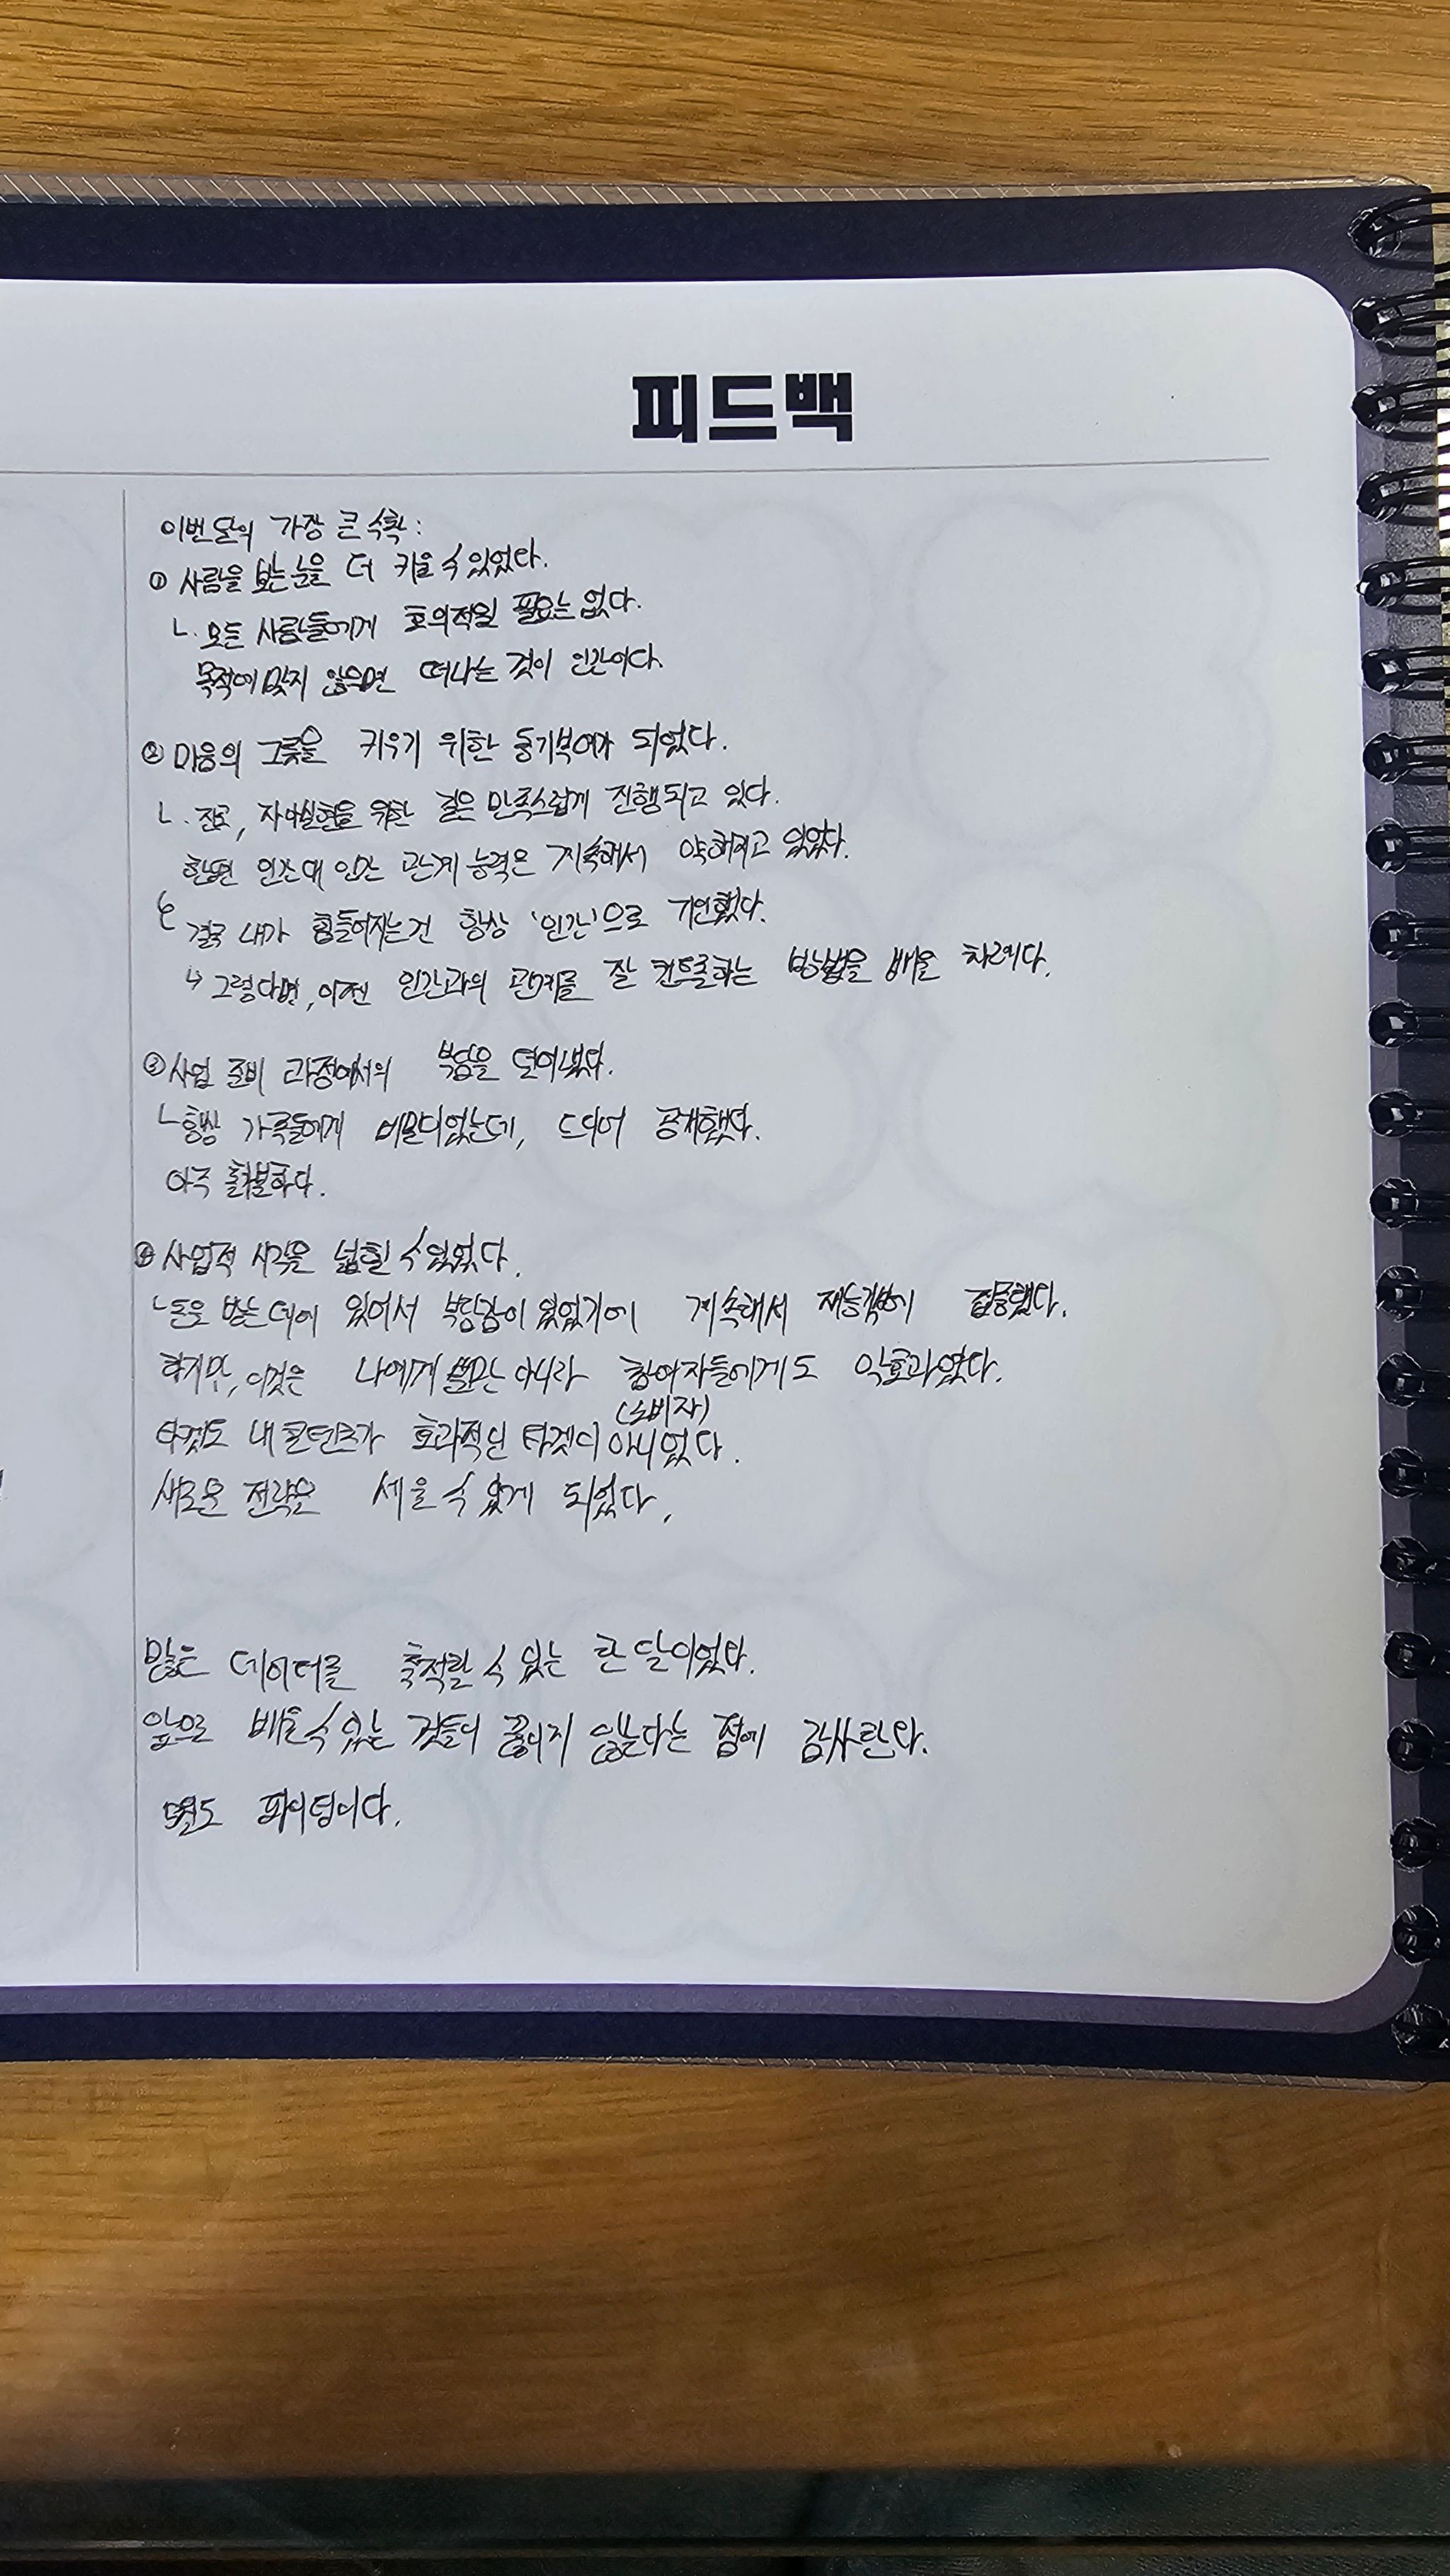 피드백
이번 달의 가장 큰 수확 :
① 사람을 보는 눈을 더 키울 수 있었다.
ㄴ. 모든 사람들에게 호의적일 필요는 없다.
목적에 맞지 않으면 떠나는 것이 인간이다.
② 마음의 그릇을 키우기 위한 동기부여가 되었다.
ㄴ. 진로, 자아실현을 위한 길은 만족스럽게 진행되고 있다.
한편 인간 대 인간 관계 능력은 계속해서 약해지고 있었다.
결국 내가 힘들어지는건 항상 '인간'으로 기인했다.
↳ 그렇다면, 이젠 인간과의 관계를 잘 컨트롤하는 방법을 배울 차례다.
③ 사업 준비 과정에서의 부담을 덜어냈다.
ㄴ 항상 가족들에게 비밀이었는데, 드디어 공개했다.
아주 홀가분하다.
④ 사업적 시각을 넓힐 수 있었다.
ㄴ 돈을 받는 데에 있어서 부담감이 있었기에 계속해서 재능기부에 집중했다.
하지만, 이것은 나에게 뿐만 아니라 참여자들에게도 역효과였다.
(소비자)
내 콘텐츠가 효과적인 타겟이 아니었다.
새로운 전략을 세울 수 있게 되었다.
많은 데이터를 축적할 수 있는 한 달이었다.
앞으로 배울 수 있는 것들이 끊이지 않는다는 점에 감사한다.
파이팅이다.